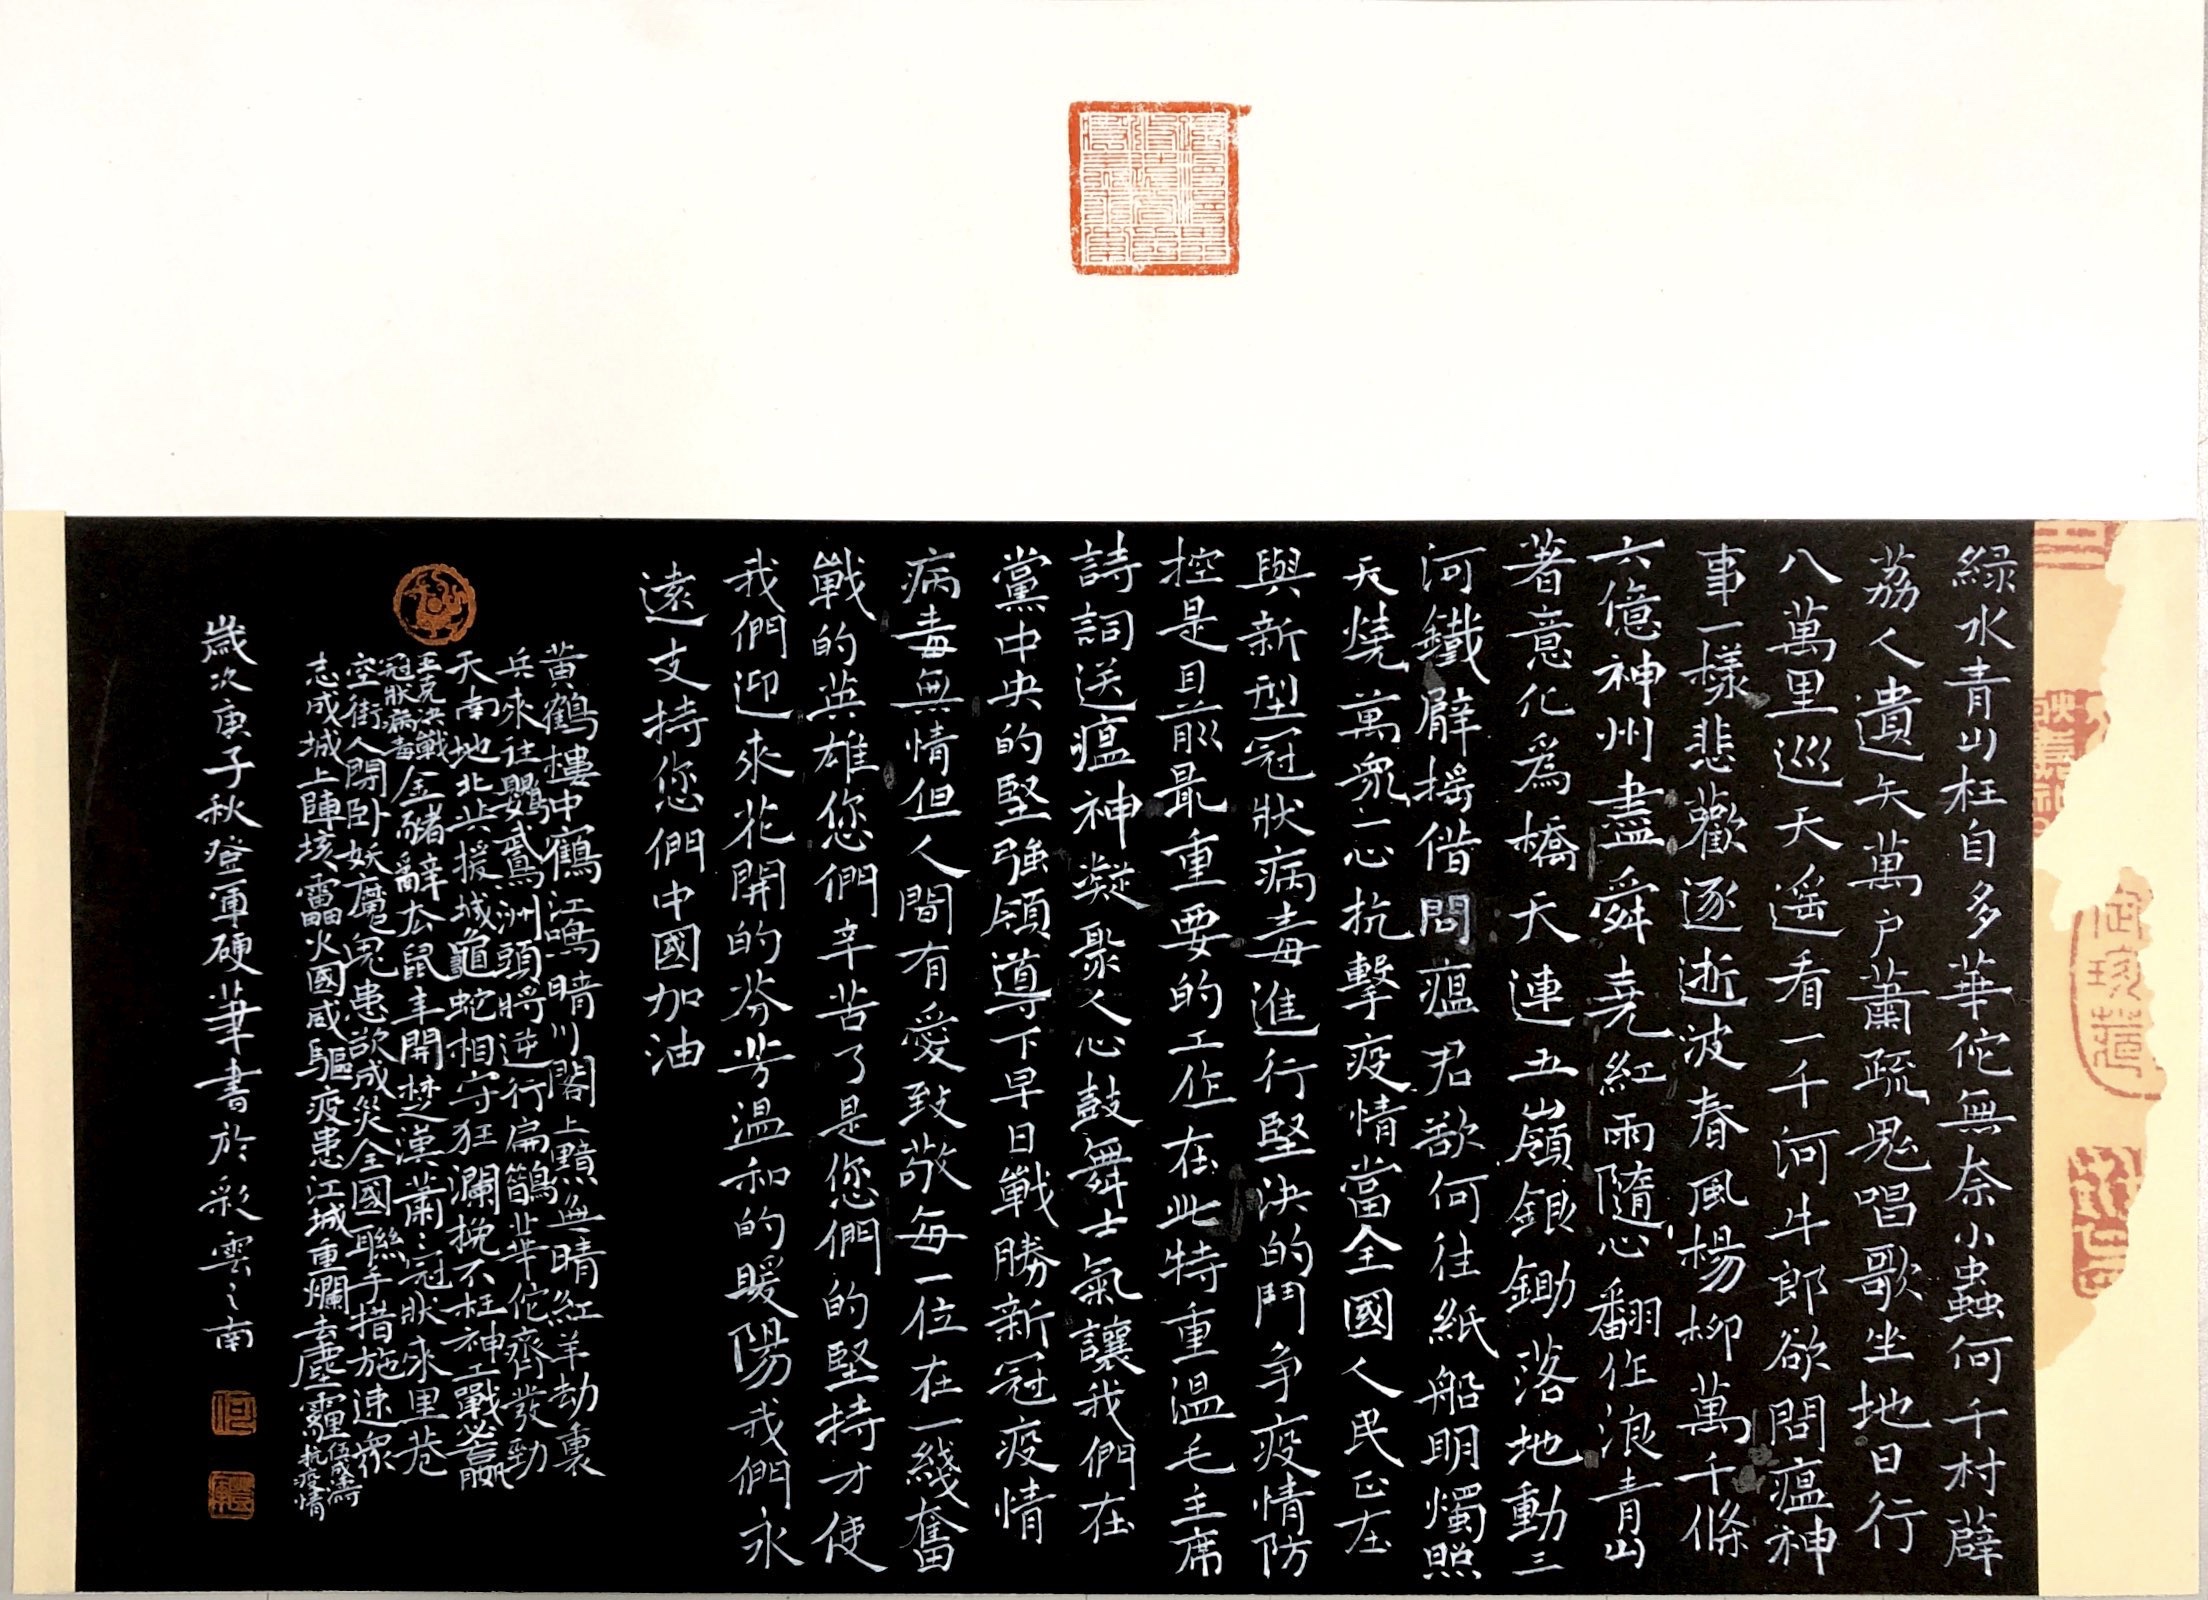 綠水青山枉自多華佗無奈小蟲何千村薜
荔人遺矢萬户蕭疏鬼唱歌坐地日行
八萬里巡天遥看一千河牛郎欲問瘟神
事一樣悲歡逐逝波春風楊柳萬千條
六億神州盡舜堯紅雨隨心翻作浪青山
著意化爲橋天連五嶺銀鋤落地動三
河鐵臂摇借問瘟君欲何往紙船明燭照
天燒萬衆一心抗擊疫情當全國人民正在
與新型冠狀病毒進行堅决的鬥争疫情防
控是目前最重要的工作在此特重温毛主席
詩詞送瘟神凝聚人心鼓舞士氣讓我們在
黨中央的堅强領導下早日戰勝新冠疫情
病毒無情但人間有愛致敬每一位在一綫奮
戰的英雄您們辛苦了是您們的堅持才使
我們迎來花開的芬芳温和的暖陽我們永
遠支持您們中國加油
黄鶴樓中鶴江鳴晴川閣上黯無晴紅羊劫裏
兵來往鸚鵡洲頭將逆行扁鵲華佗齊發勁
天南地北共援城龜蛇相守狂瀾挽不枉神工戰必贏
王克决戰
冠狀病毒
金豬辭去鼠年開楚漢蕭冠狀來里巷
空街人閉卧妖魔鬼患欲成災全國聯手措施速衆
志成城上陣垓雷火國威驅疫患江城重爛塵霾
伍成濤
抗疫情
歲次庚子秋登軍硬筆書於彩雲之南